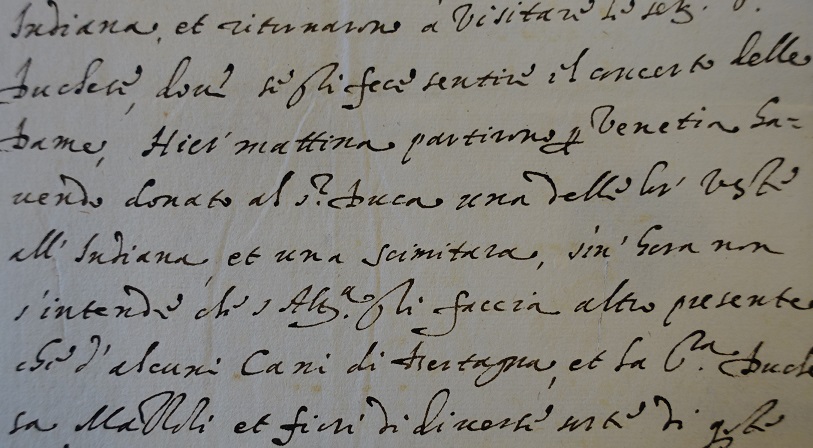 Indiana, et ritornarono à visitare le ser.
Duchesse, dove se gli fece sentire il concerto delle
Dame, Hier' mattina partirono p Venetia ha=
vendo donato al s.r Duca una delle lor' veste
all' Indiana, et una scimitara, sin' hora non
s'intende che s Alt.a gli faccia altro presente
che d'alcuni Cani di Bertagna, et la Duch
sa et fiori di diverse sorte di qste